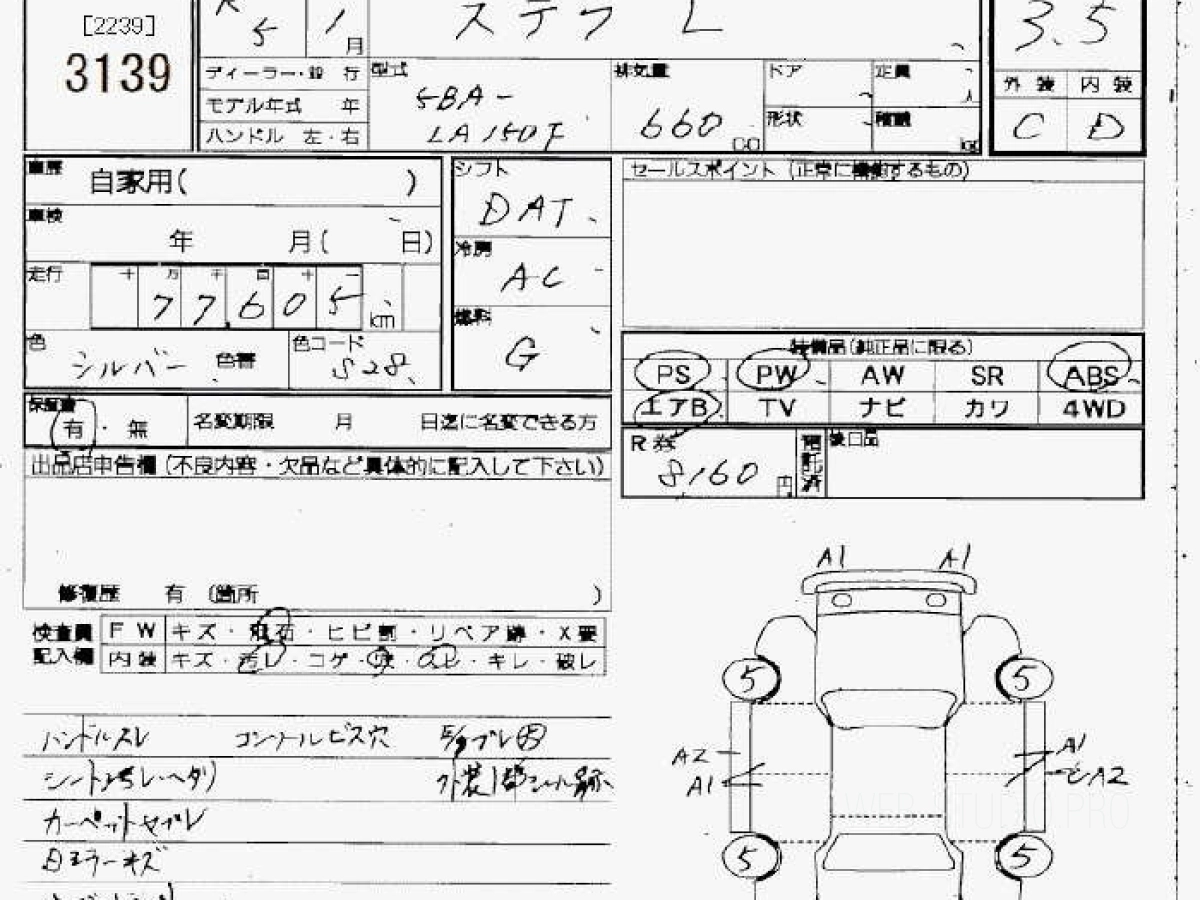 [2239]
3139
R 5 1 月
ステラ L
3.5
ディーラー・並 行
モデル年式 年
ハンドル 左・右
型式
5BA-
LA150F
排気量
660 CC
ドア
定員
形状
積載 kg
外装 内装
C D
車歴 自家用( )
車検
年 月( 日)
走行 十 万 千 百 十 一
77605 km
色 シルバー 色替
色コード S28
シフト
DAT
冷房
AC
燃料
G
セールスポイント (正常に機能するもの)
装備品(純正品に限る)
PS PW AW SR ABS
エアB TV ナビ カワ 4WD
保証書
有・無
名変期限 月 日迄に名変できる方
R券
8160円
預託済
後日品
出品店申告欄(不良内容・欠品など具体的に記入して下さい)
修復歴 有 (箇所 )
検査員
記入欄
FW キズ・飛石・ヒビ割・リペア跡・X要
内装 キズ・汚レ・コゲ・穴・スレ・キレ・破レ
ハンドルスレ コンソールビス穴
シート汚レ・ヘタリ
カーペットヨゴレ
ミラーキズ
A1 A1
5 5
A2 A1
A1 A2
5 5
WEB STUDIO PRO